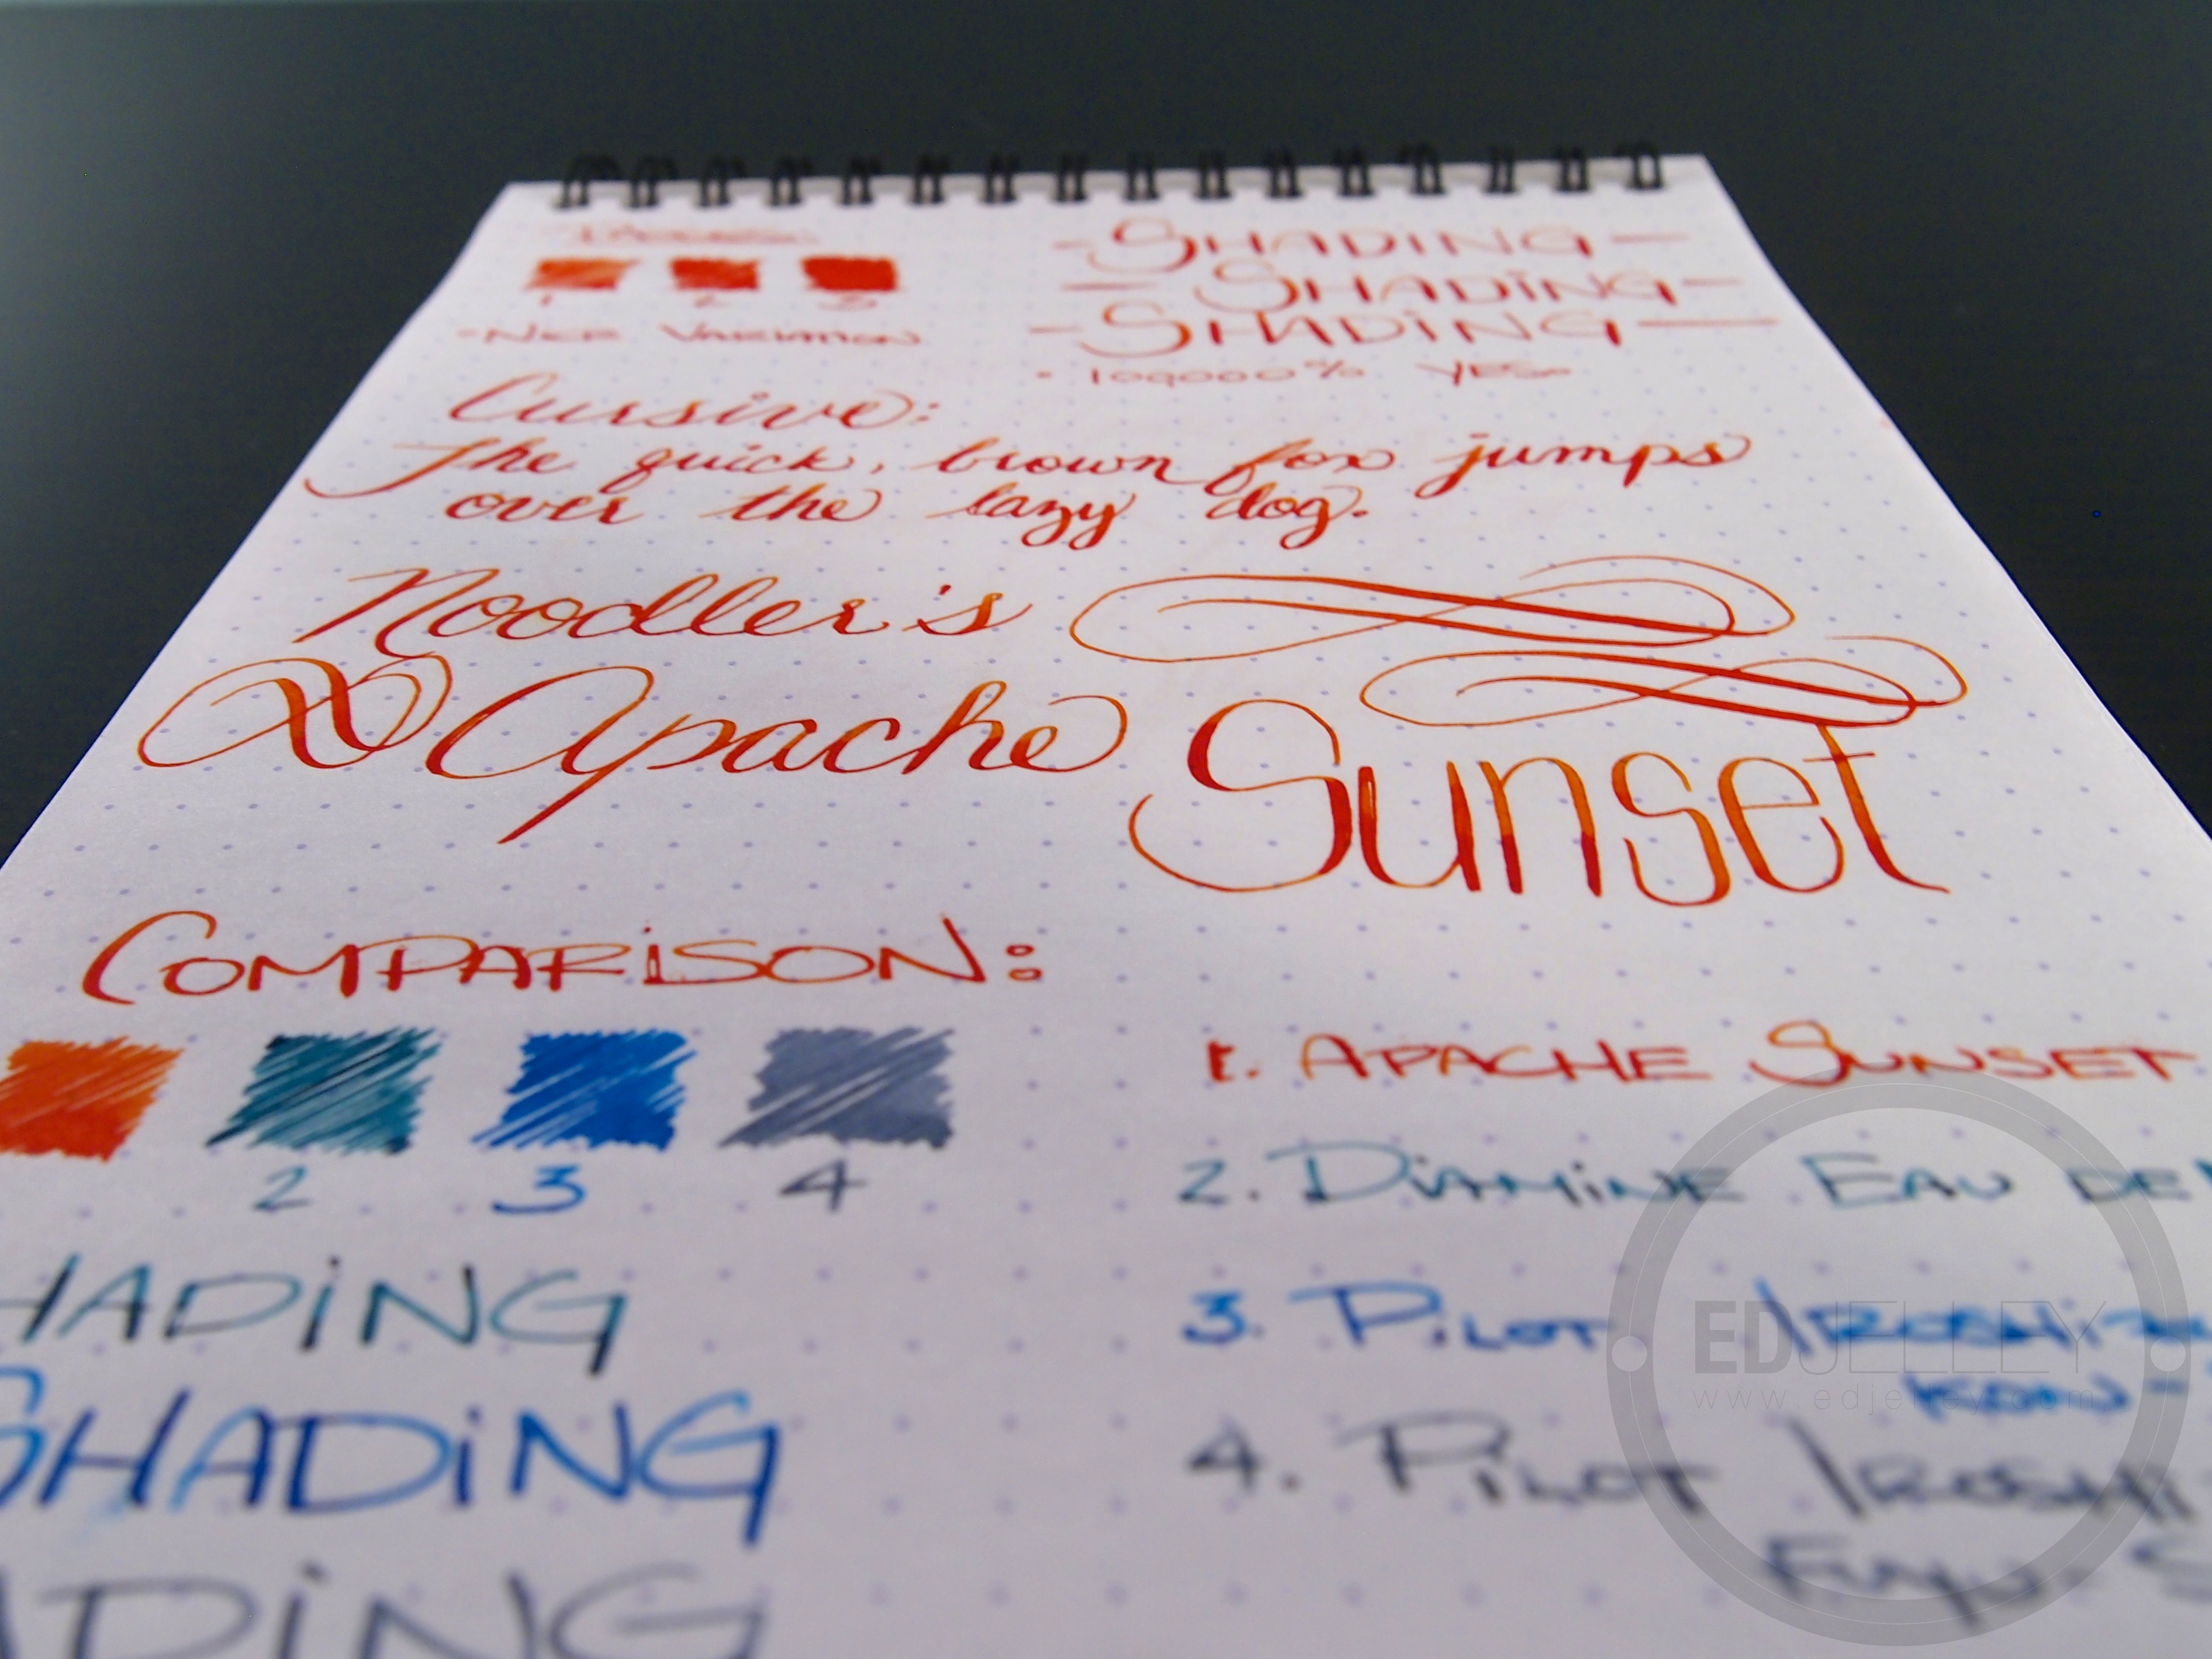 1 2 3
- NICE VARIATION
- SHADING -
- SHADING -
- SHADING -
YES
Cursive:
The quick, brown fox jumps
over the lazy dog.
Noodler's
Apache Sunset
COMPARISON:
2 3 4
1. APACHE SUNSET
2. DIAMINE EAU DE
3. PILOT IROSHIZU
KON-
4. PILOT IROSHI
FUYU-S
HADING
SHADING
ADING
EDJELLEY
www.edjelley.com